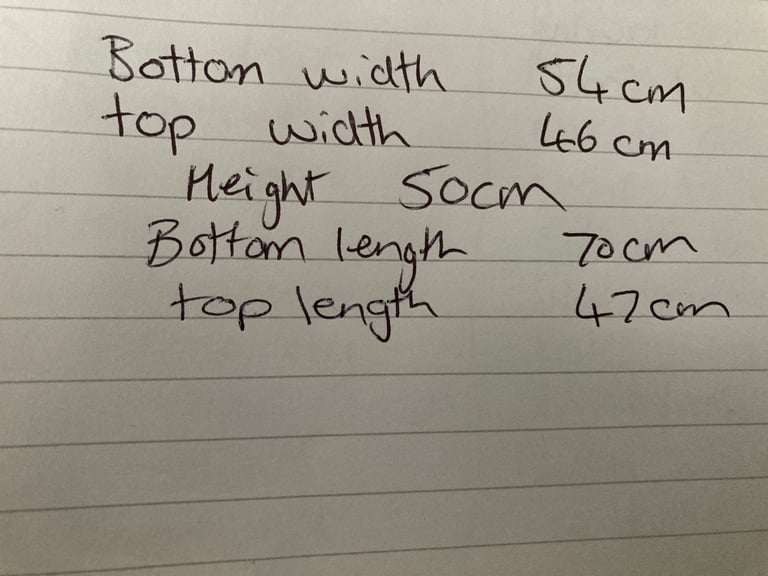 Bottom width 54cm
top width 46cm
Height 50cm
Bottom length 70cm
top length 47cm